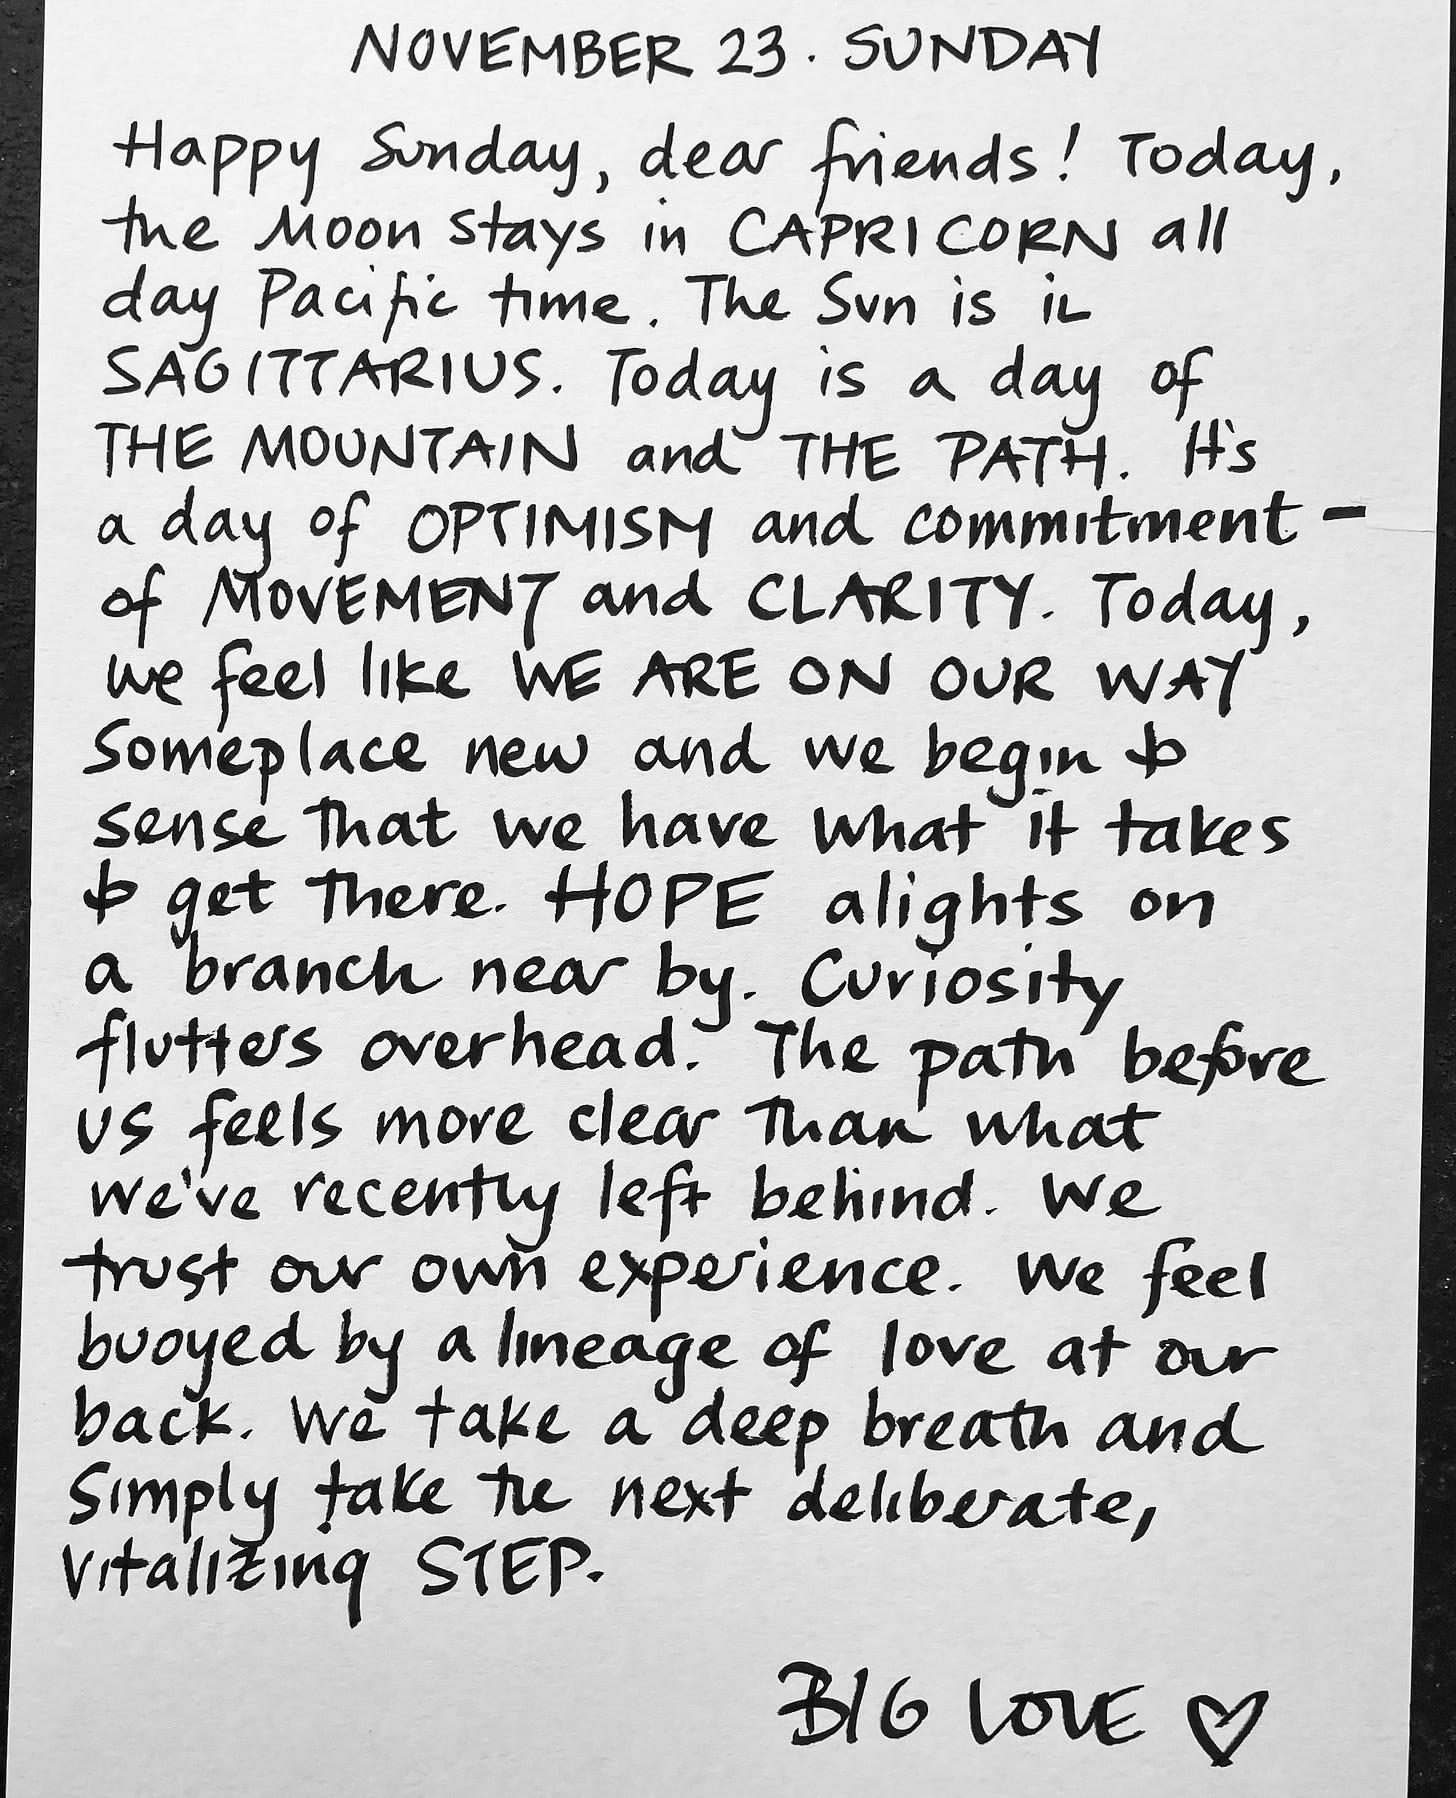 NOVEMBER 23 · SUNDAY
Happy Sunday, dear friends! Today,
the Moon stays in CAPRICORN all
day Pacific time. The Sun is in
SAGITTARIUS. Today is a day of
THE MOUNTAIN and THE PATH. It's
a day of OPTIMISM and commitment –
of MOVEMENT and CLARITY. Today,
we feel like WE ARE ON OUR WAY
someplace new and we begin to
sense that we have what it takes
to get there. HOPE alights on
a branch near by. Curiosity
flutters overhead. The path before
us feels more clear than what
we've recently left behind. We
trust our own experience. We feel
buoyed by a lineage of love at our
back. We take a deep breath and
simply take the next deliberate,
vitalizing STEP.
BIG LOVE ♡